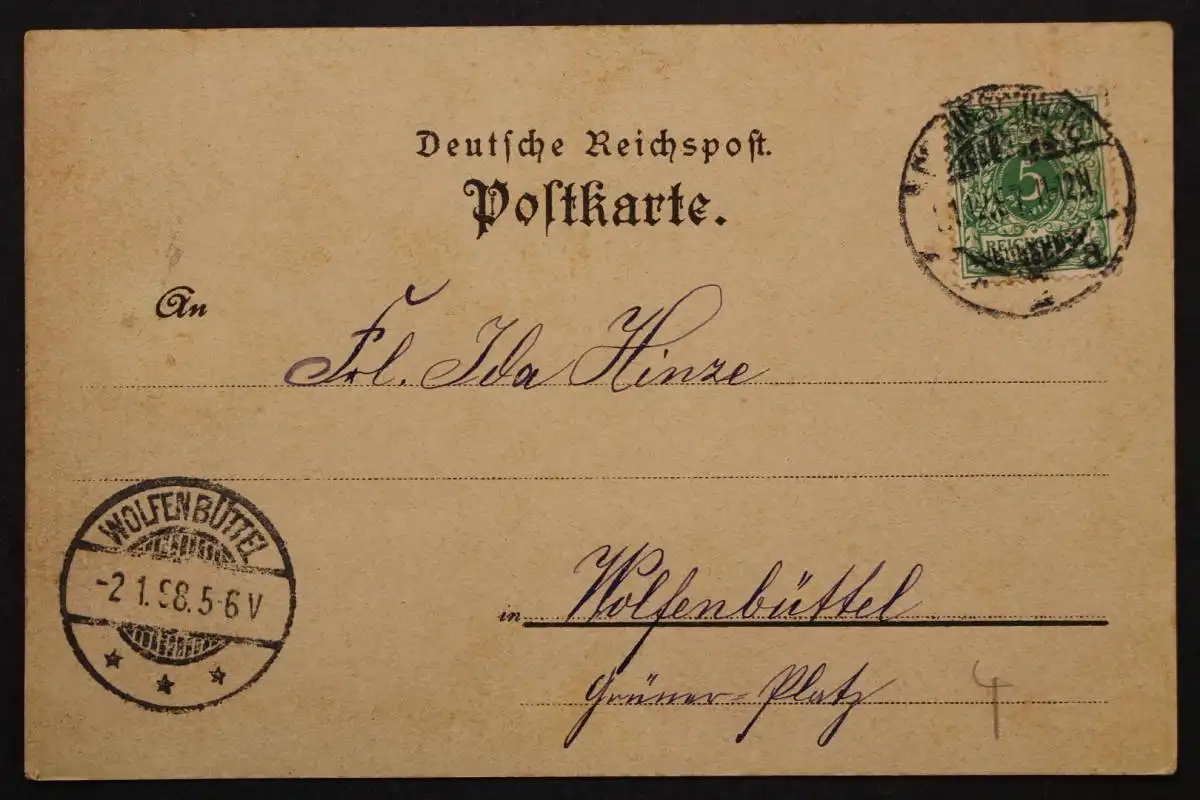 Deutsche Reichspost.
Postkarte.
5
REICHSPOST
An
Frl. Ida Hinze
WOLFENBÜTTEL
-2 1.98.5-6 V
in Wolfenbüttel
Grüner-Platz